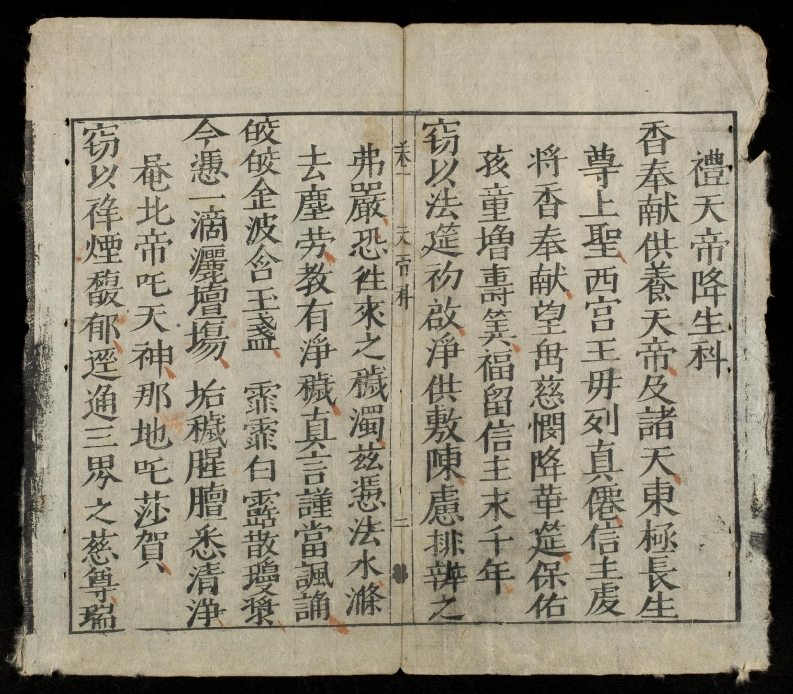 禮天帝降生科
香奉献供養天帝及諸天東極長生
尊上聖西宫王毋列真僊信主虔
将香奉献望垂慈憫降華筵保佑
孩童増壽筭福留信主末千年
窃以法筵初啟淨供敷陳慮排辦之
卷一 天帝科 二
弗嚴恐徃來之穢濁兹憑法水滌
去塵劳教有淨穢真言謹當諷誦
皎皎金波含玉盞 霏霏白露散瓊漿
今憑一滴灑壇場 垢穢腥膻悉清浄
唵北帝吒天神那地吒莎賀
窃以祥煙馥郁逕通三界之慈尊瑞